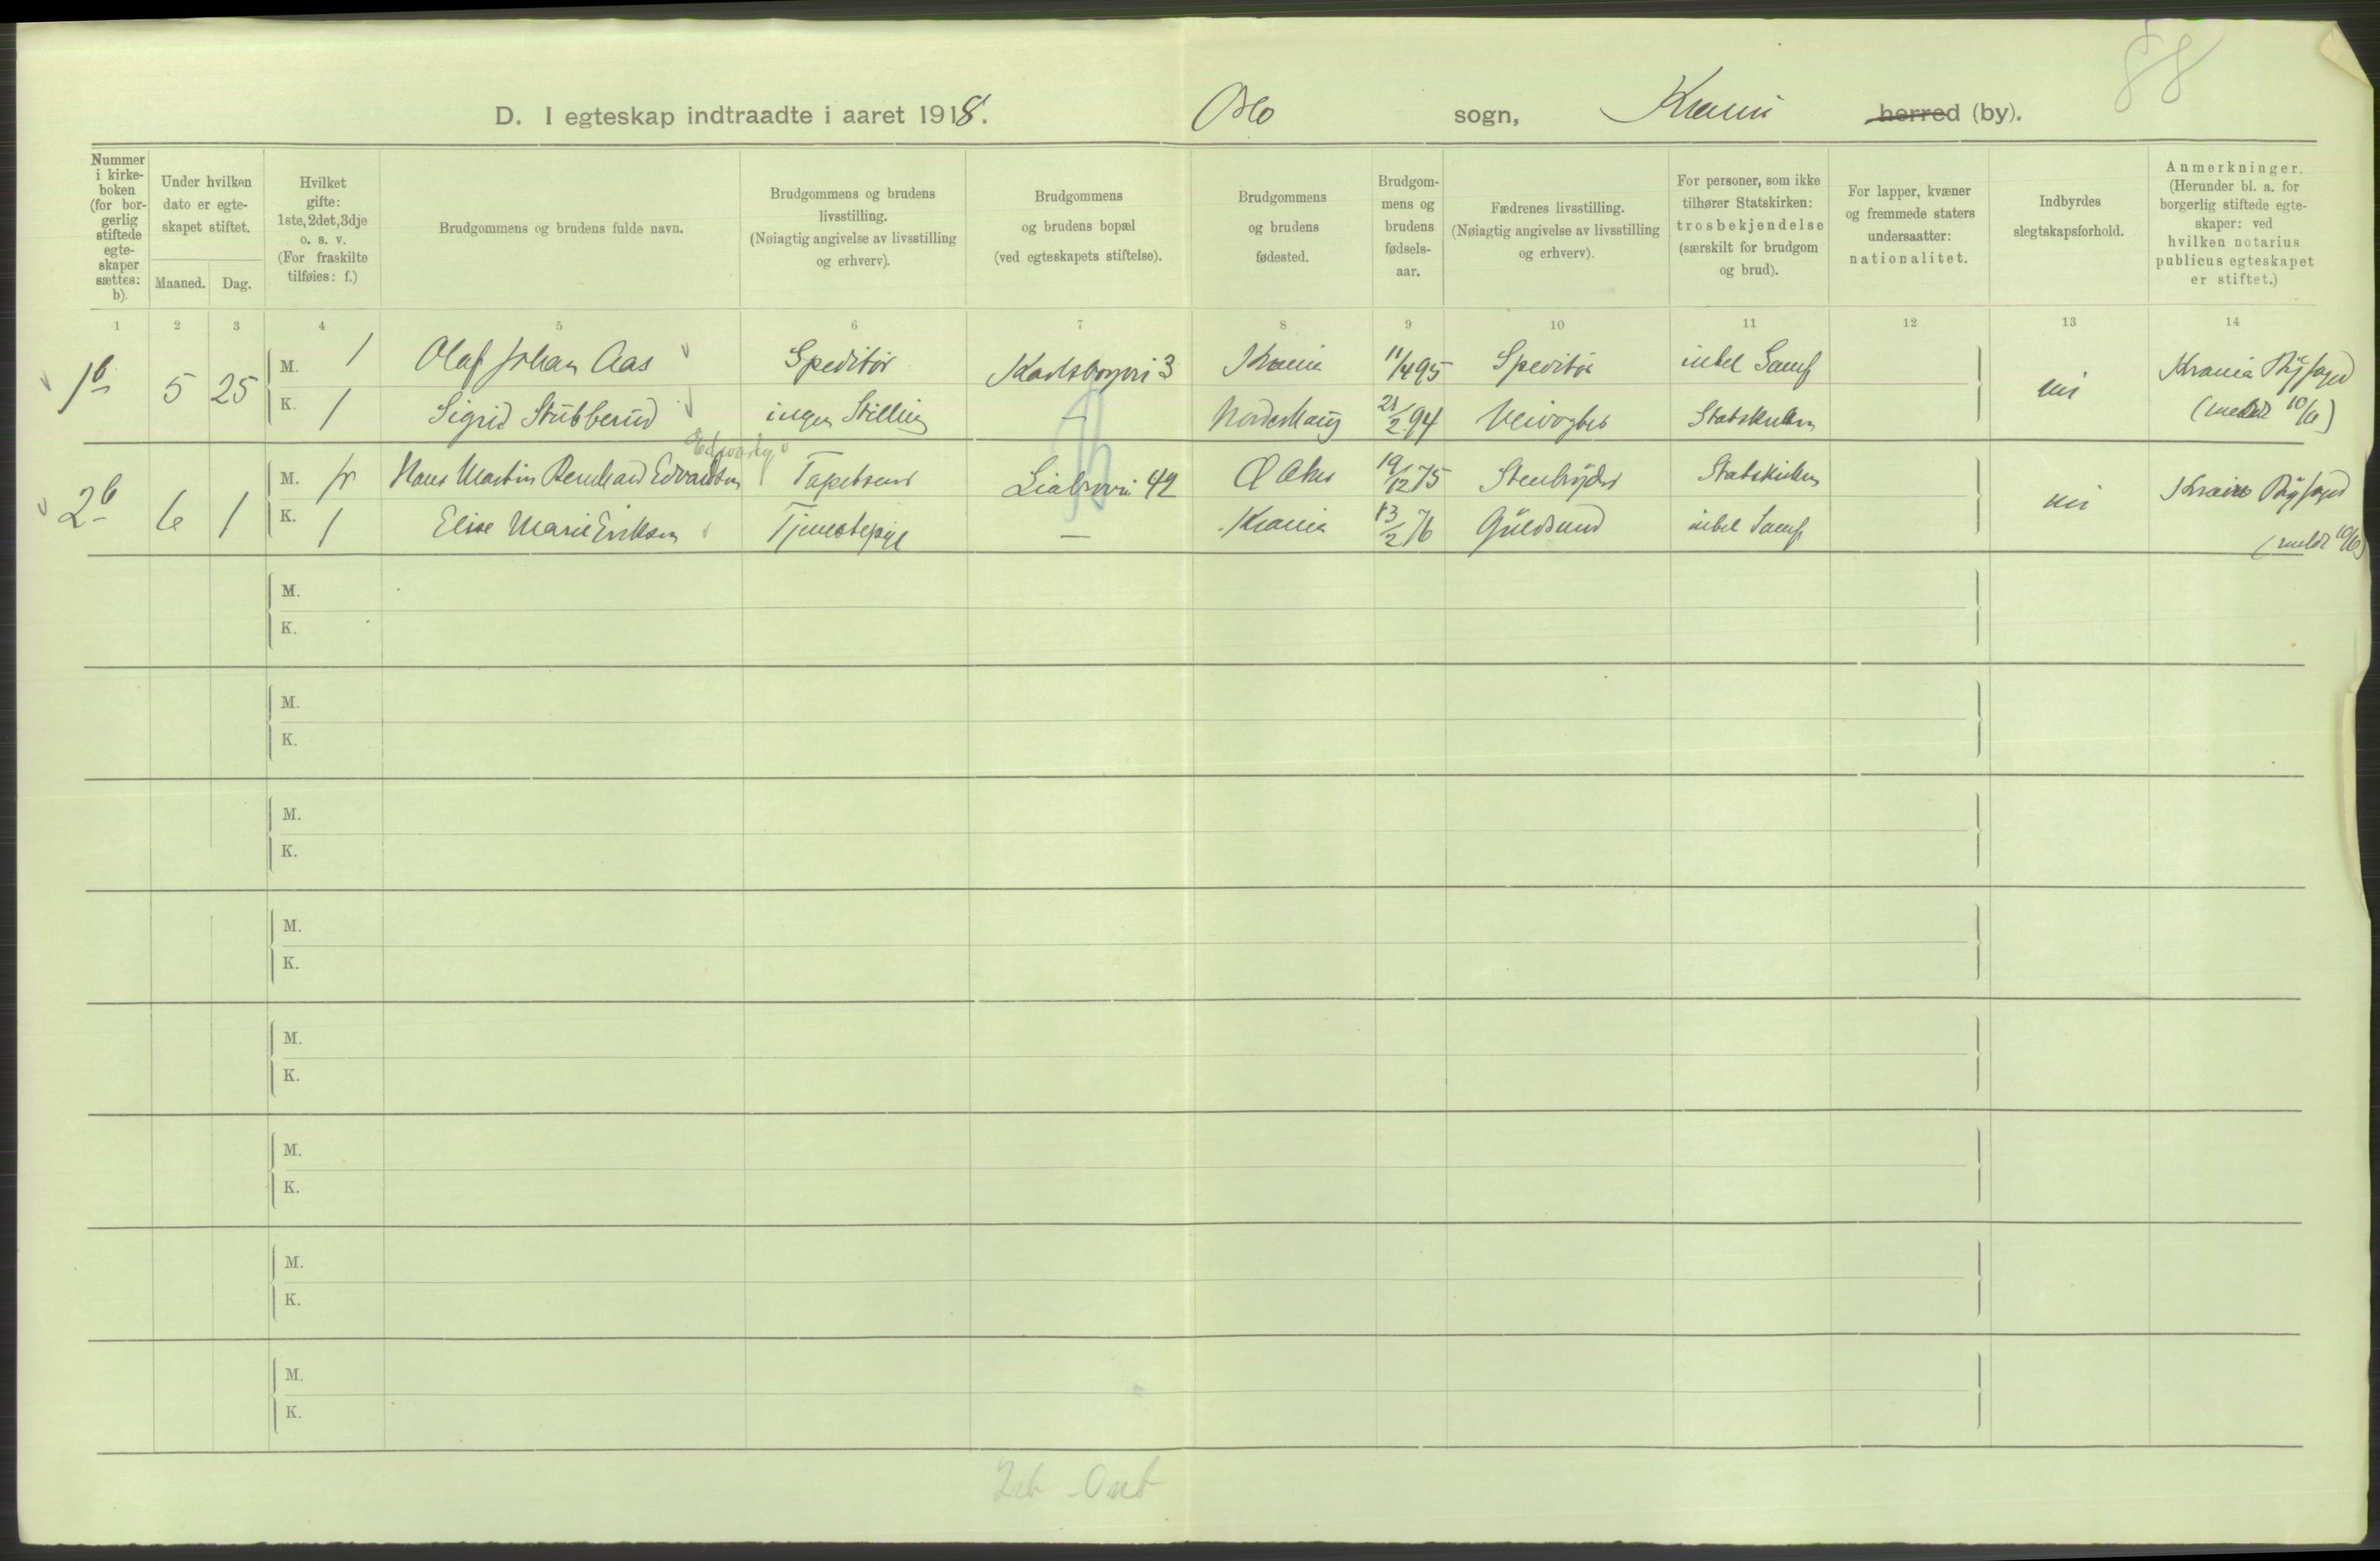 88
D. I egteskap indtraadte i aaret 1918. Oslo sogn, Krania herred (by).
Nummer i kirke-boken (for bor-gerlig stiftede egte-skaper sættes: b).
Under hvilken dato er egte-skapet stiftet.
Maaned. Dag.
Hvilket gifte: 1ste, 2det, 3dje o. s. v. (For fraskilte tilføies: f.)
Brudgommens og brudens fulde navn.
Brudgommens og brudens livsstilling. (Nøiagtig angivelse av livsstilling og erhverv).
Brudgommens og brudens bopæl (ved egteskapets stiftelse).
Brudgommens og brudens fødested.
Brudgom-mens og brudens fødsels-aar.
Fædrenes livsstilling. (Nøiagtig angivelse av livsstilling og erhverv).
For personer, som ikke tilhører Statskirken: trosbekjendelse (særskilt for brudgom og brud).
For lapper, kvæner og fremmede staters undersaatter: nationalitet.
Indbyrdes slegtskapsforhold.
Anmerkninger. (Herunder bl. a. for borgerlig stiftede egte-skaper: ved hvilken notarius publicus egteskapet er stiftet.)
1 2 3 4 5 6 7 8 9 10 11 12 13 14
1b 5 25 M. 1 Olaf Johan Aas Speditør 3 Krania 11/4 95 Speditør Krania Byfoged
K. 1 Sigrid Stubberud ingen Stilling - Norderhaug 21/2 94 Statskirken (meldt 10/6)
2b 6 1 M. Hans Martin Bernhard Edvardsen Liabrovei 42 Ø Aker 19/12 75 Stenbryder Statskirken Krania Byfoged
K. 1 Elise Marie Eriksen Tjenestepige — Krania 13/2 76 Guldsmed (meldt 10/6)
M.
K.
M.
K.
M.
K.
M.
K.
M.
K.
M.
K.
M.
K.
M.
K.